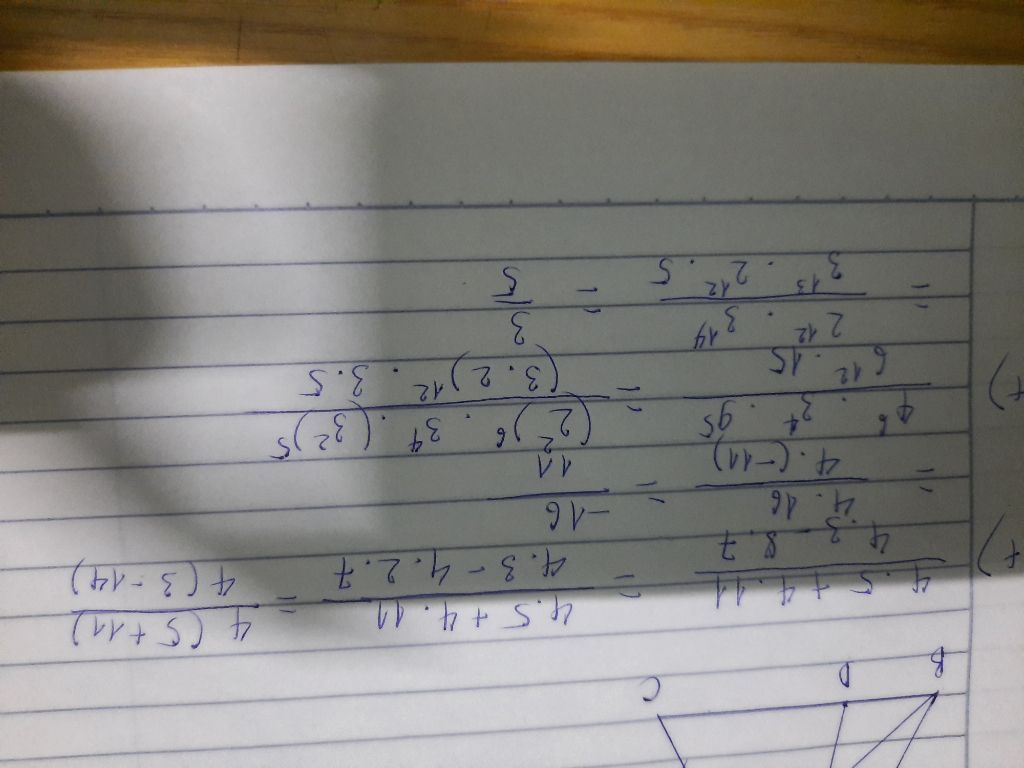 B D C
f) 4.5 + 4.11 / 4.3 - 8.7 = 4.5 + 4.11 / 4.3 - 4.2.7 = 4(5+11) / 4(3-14)
= 4.16 / 4.(-11) = -16 / 11
f) 4⁶ . 3⁴ . 9⁵ / 6¹² . 15 = (2²)⁶ . 3⁴ . (3²)⁵ / (3.2)¹² . 3.5
= 2¹² . 3¹⁴ / 3¹³ . 2¹² . 5 = 3 / 5